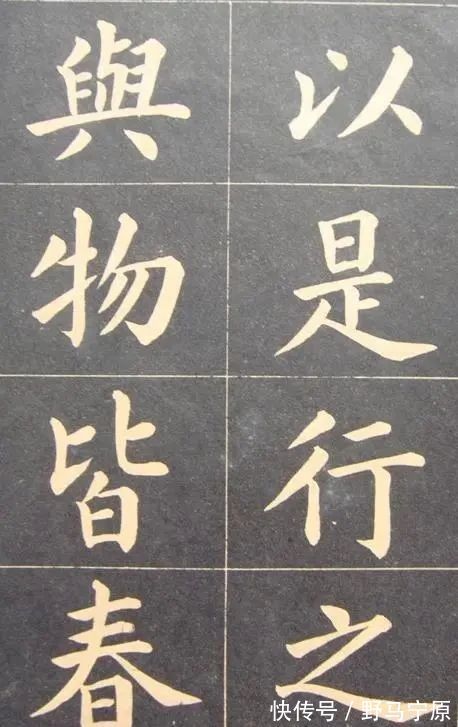 以是行之
與物皆春
快传号／野马宇原